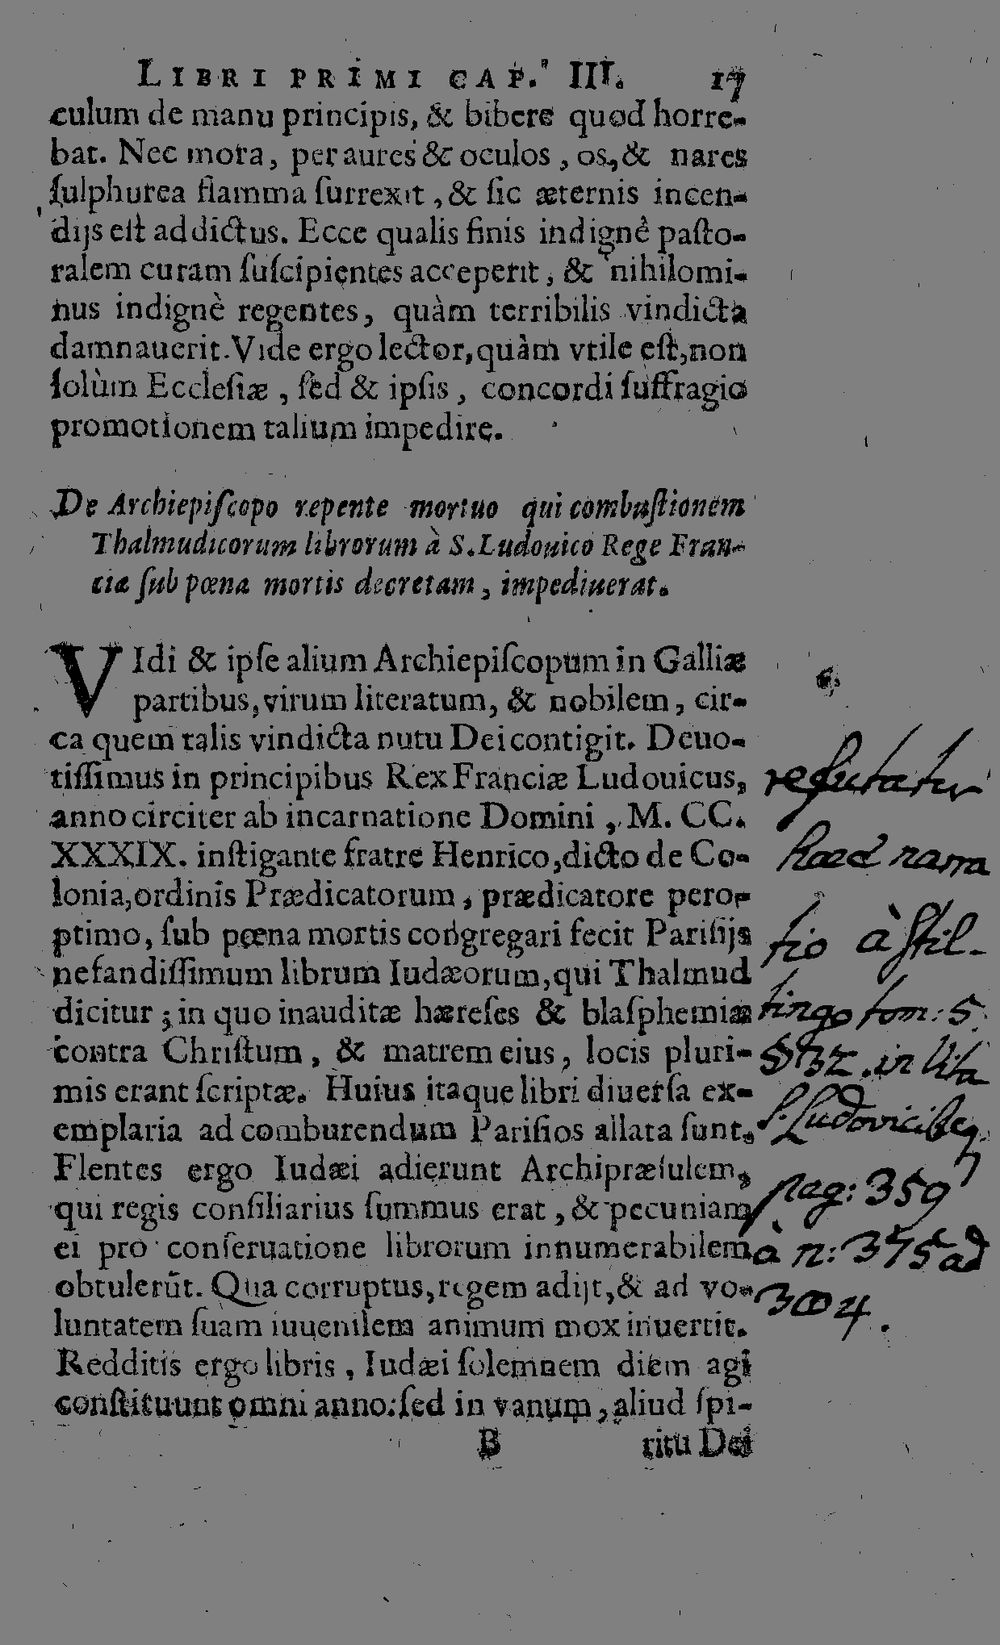 LIBRI PRIMI CAP. III. 17
culum de manu principis, & bibere quod horre-
bat. Nec mora, per aures & oculos, os, & nares
ſulphurea flamma ſurrexit, & ſic æternis incen-
dijs eſt addictus. Ecce qualis finis indignè paſto-
ralem curam ſuſcipientes acceperit, & nihilomi-
nus indignè regentes, quàm terribilis vindicta
damnauerit. Vide ergo lector, quàm vtile eſt, non
ſolùm Eccleſiæ, ſed & ipſis, concordi ſuffragio
promotionem talium impedire.
De Archiepiſcopo repente mortuo qui combuſtionem
Thalmudicorum librorum à S. Ludouico Rege Fran-
ciæ ſub pœna mortis decretam, impediuerat.
VIdi & ipſe alium Archiepiſcopum in Galliæ
partibus, virum literatum, & nobilem, cir-
ca quem talis vindicta nutu Dei contigit. Deuo-
tiſſimus in principibus Rex Franciæ Ludouicus,
anno circiter ab incarnatione Domini, M. CC.
XXXIX. inſtigante fratre Henrico, dicto de Co-
lonia, ordinis Prædicatorum, prædicatore pero-
ptimo, ſub pœna mortis congregari fecit Pariſijs
nefandiſſimum librum Iudæorum, qui Thalmud
dicitur; in quo inauditæ hæreſes & blaſphemiæ
contra Chriſtum, & matrem eius, locis pluri-
mis erant ſcriptæ. Huius itaque libri diuerſa ex-
emplaria ad comburendum Pariſios allata ſunt.
Flentes ergo Iudæi adierunt Archipræſulem,
qui regis conſiliarius ſummus erat, & pecuniam
ei pro conſeruatione librorum innumerabilem
obtulerūt. Qua corruptus, regem adijt, & ad vo-
luntatem ſuam iuuenilem animum mox inuertit.
Redditis ergo libris, Iudæi ſolemnem diem agi
conſtituunt omni anno: ſed in vanum, aliud ſpi-
B ritu Dei
refutatur
hæc narra
tio à Stil-
tingo tom: 5.
in vita
S. Ludovici
pag: 359
à n: 375 ad